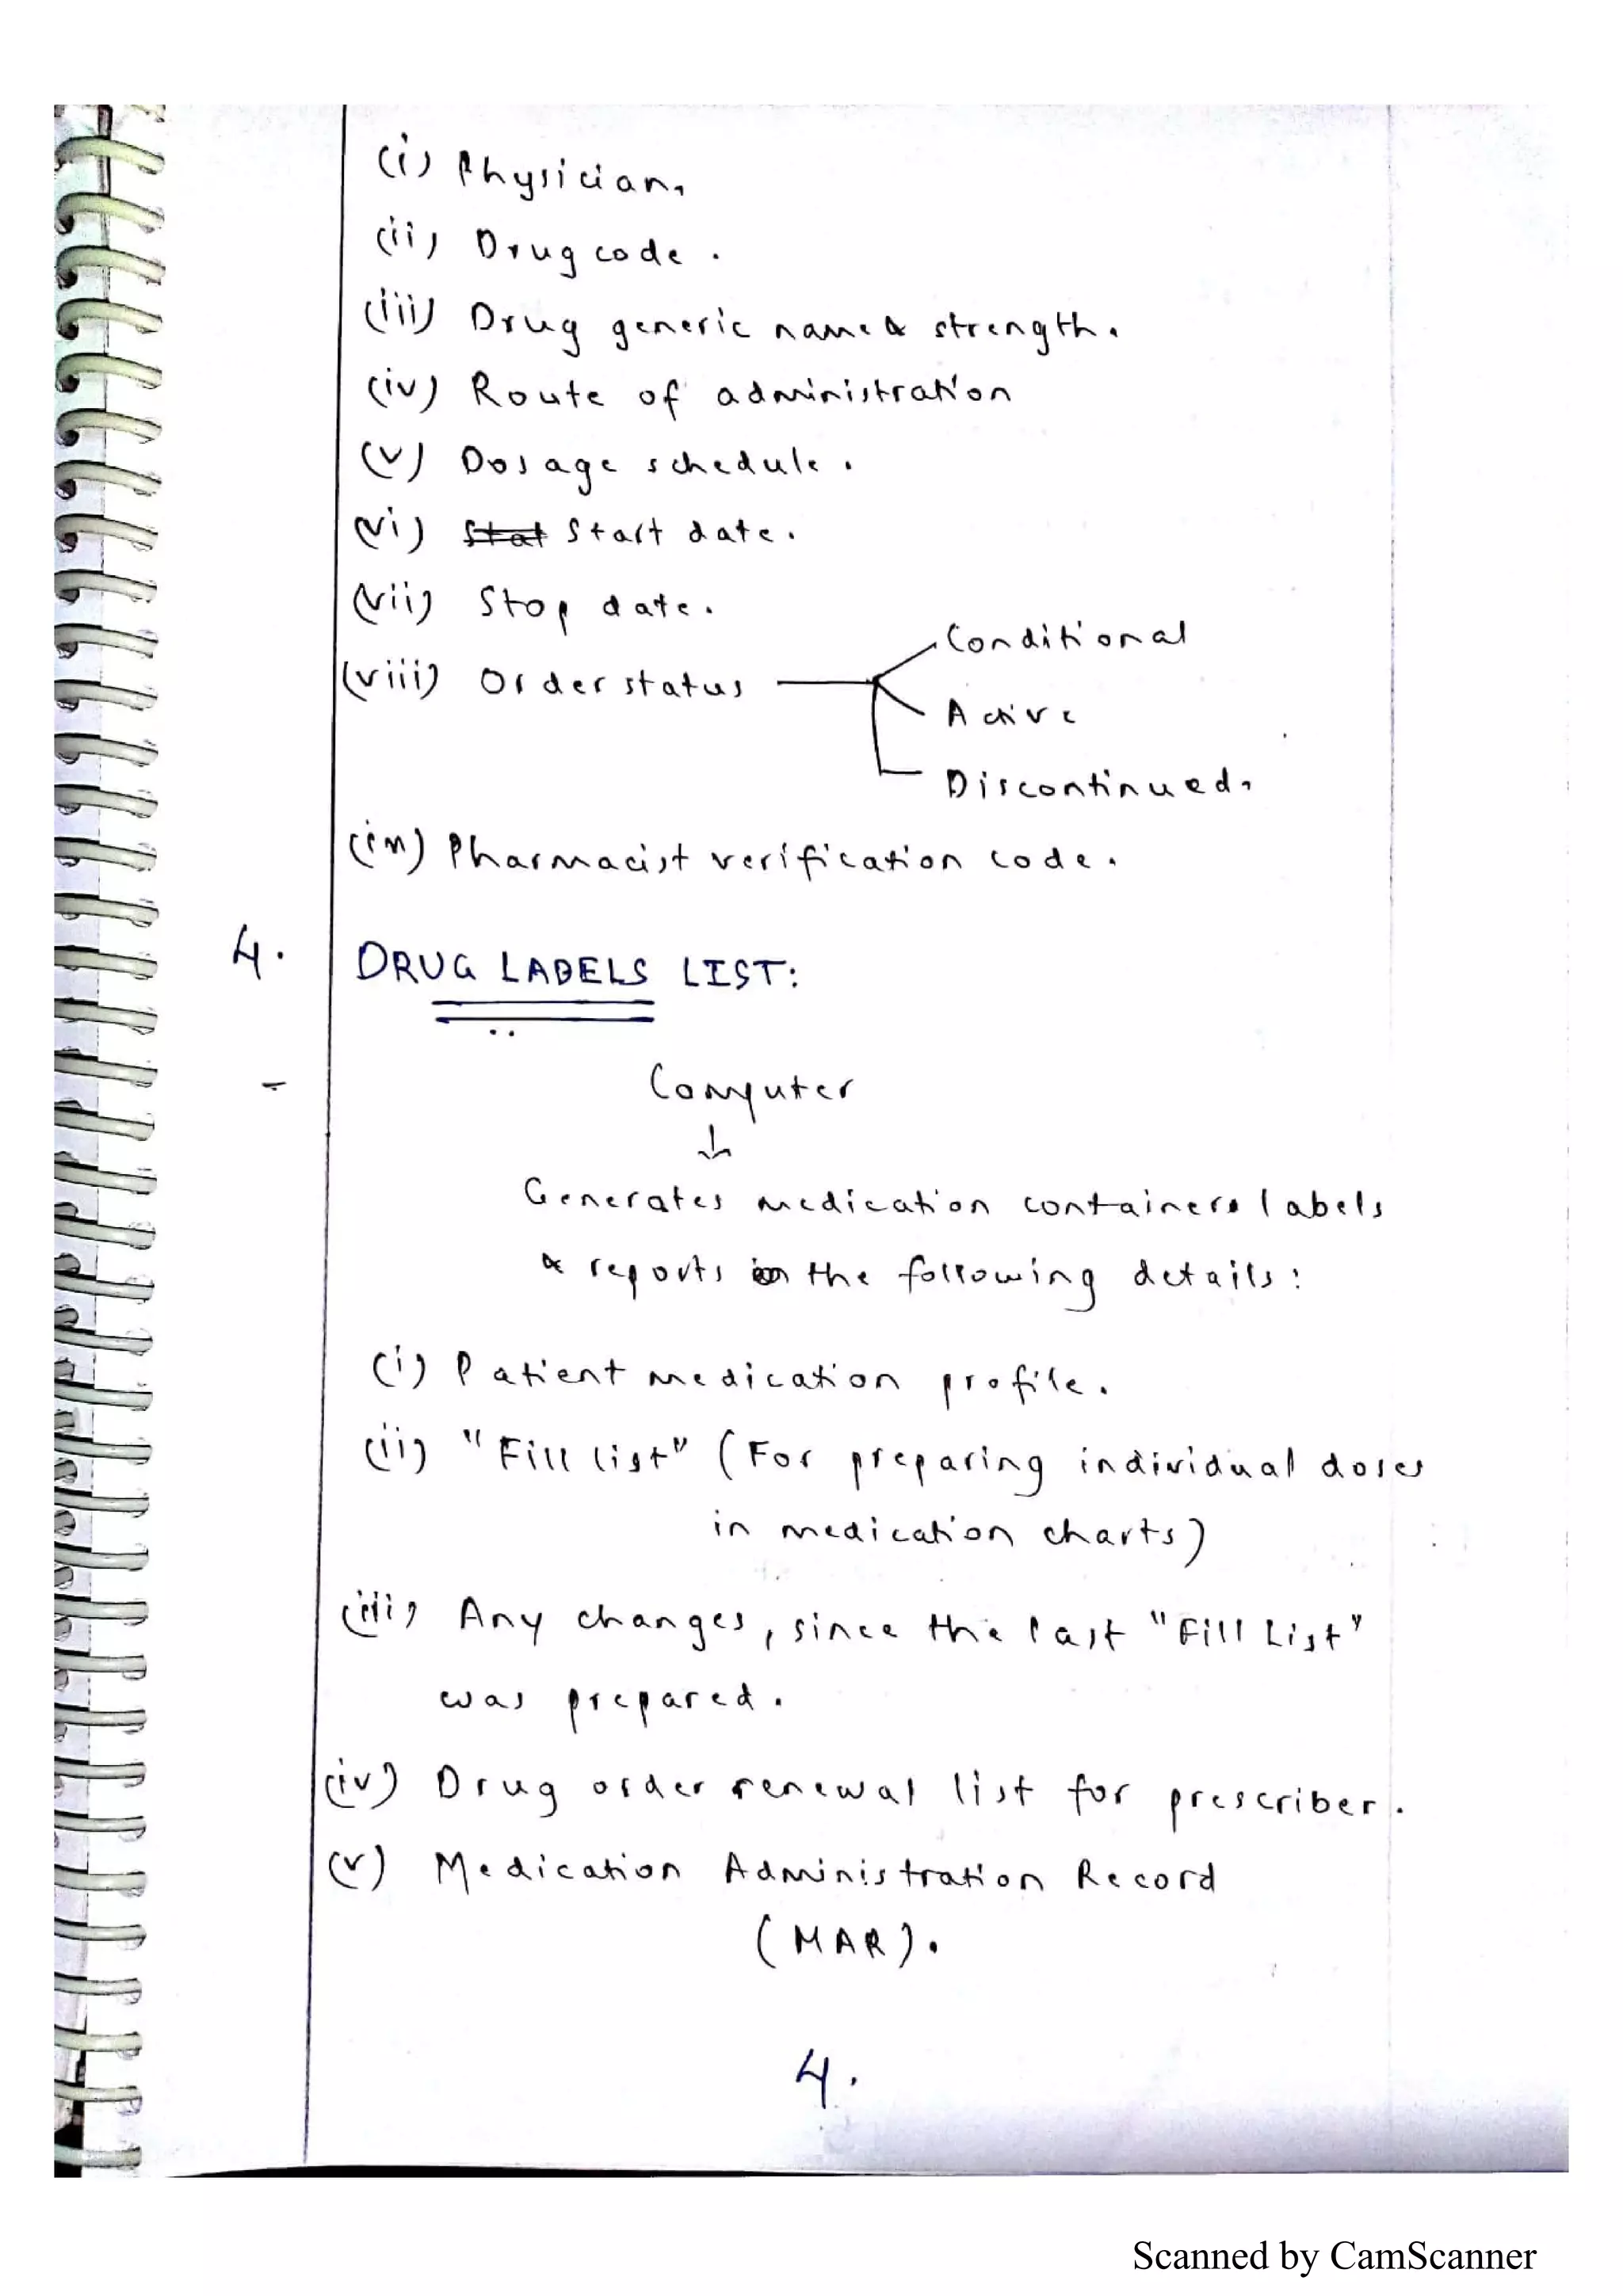 (i) Physician.
(ii) Drug code.
(iii) Drug generic name & strength.
(iv) Route of administration
(v) Dosage schedule.
(vi) Stat Start date.
(vii) Stop date.
Conditional
(viii) Order status
Active
Discontinued.
(ix) Pharmacist verification code.
4. DRUG LABELS LIST:
- Computer
↓
Generates medication containers labels
& reports on the following details:
(i) Patient medication profile.
(ii) "Fill list" (For preparing individual doses
in medication charts)
(iii) Any changes, since the last "Fill List"
was prepared.
(iv) Drug order renewal list for prescriber.
(v) Medication Administration Record
(MAR).
4.
Scanned by CamScanner